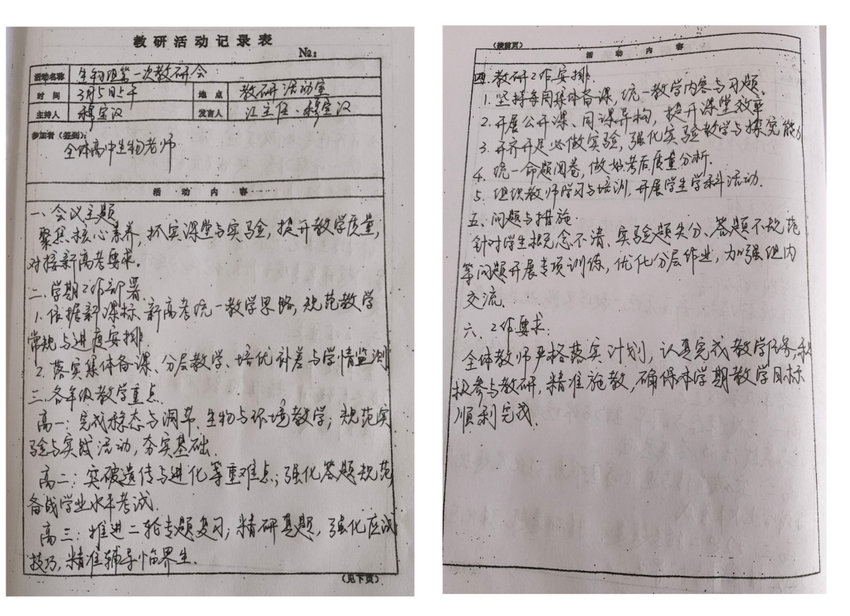 教研活动记录表
№:
活动名称 生物组第一次教研会
时间 3月5日上午 地点 教研活动室
主持人 穆宝汉 发言人 江主任、穆宝汉
参加者(签到):
全体高中生物老师
活动内容
一、会议主题
聚焦核心素养,抓实课堂与实验,提升教学质量,
对接新高考要求。
二、学期工作部署
1.依据新课标、新高考统一教学思路,规范教学
常规与进度安排.
2.落实集体备课、分层教学、培优补差与学情监测
三、各年级教学重点
高一:完成稳态与调节、生物与环境教学;规范实
验与实践活动,夯实基础.
高二:突破遗传与进化等重难点;强化答题规范
备战学业水平考试.
高三:推进二轮专题复习;精研真题,强化应试
技巧,精准辅导临界生.
(见下页)
(接前页)
活动内容
四.教研工作安排.
1.坚持每周集体备课,统一教学内容与习题.
2.开展公开课、同课异构,提升课堂效率
3.开齐开足必做实验,强化实验教学与探究能力
4.统一命题阅卷,做好考后质量分析.
5.组织教师学习与培训,开展学生学科活动.
五、问题与措施
针对学生概念不清、实验题失分、答题不规范
等问题开展专项训练,优化分层作业,加强组内
交流.
六、工作要求:
全体教师严格落实计划,认真完成教学任务,积
极参与教研,精准施教,确保本学期教学目标
顺利完成.